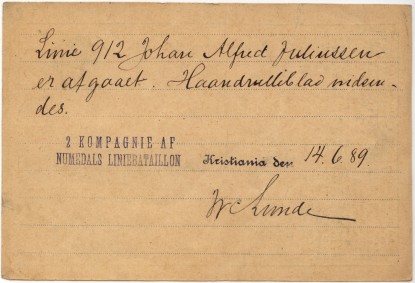 Linie 912 Johan Alfred Juliussen
er afgaaet. Haandrulleblad indsen-
des.
2 KOMPAGNIE AF
NUMEDALS LINIEBATAILLON
Kristiania den 14.6.89.
Lunde